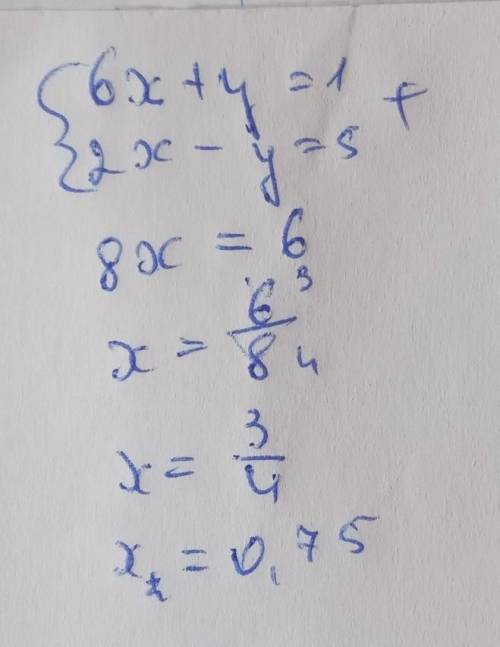 {6x + y = 1 +
2x - y = 5
8x = 6
x = 6/8 3 4
x = 3/4
x = 0,75